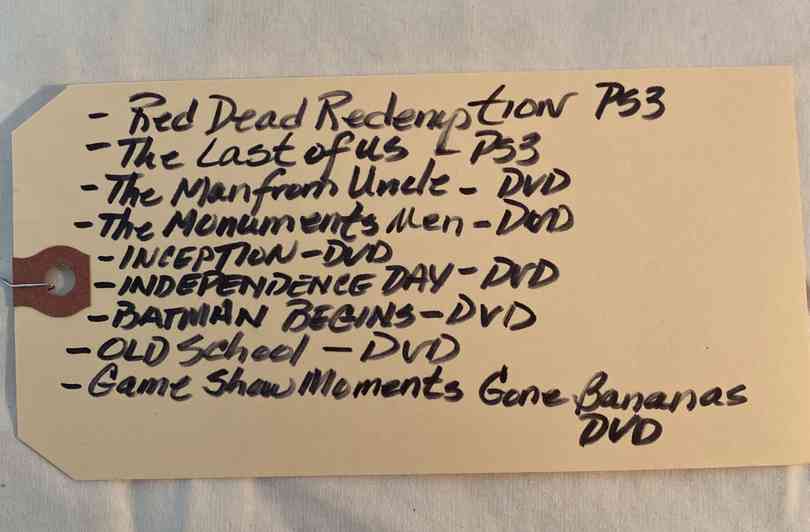 - Red Dead Redemption PS3
- The Last of us - PS3
- The Man from Uncle - DVD
- The Monuments Men - DVD
- INCEPTION - DVD
- INDEPENDENCE DAY - DVD
- BATMAN BEGINS - DVD
- OLD School - DVD
- Game Show Moments Gone Bananas
DVD